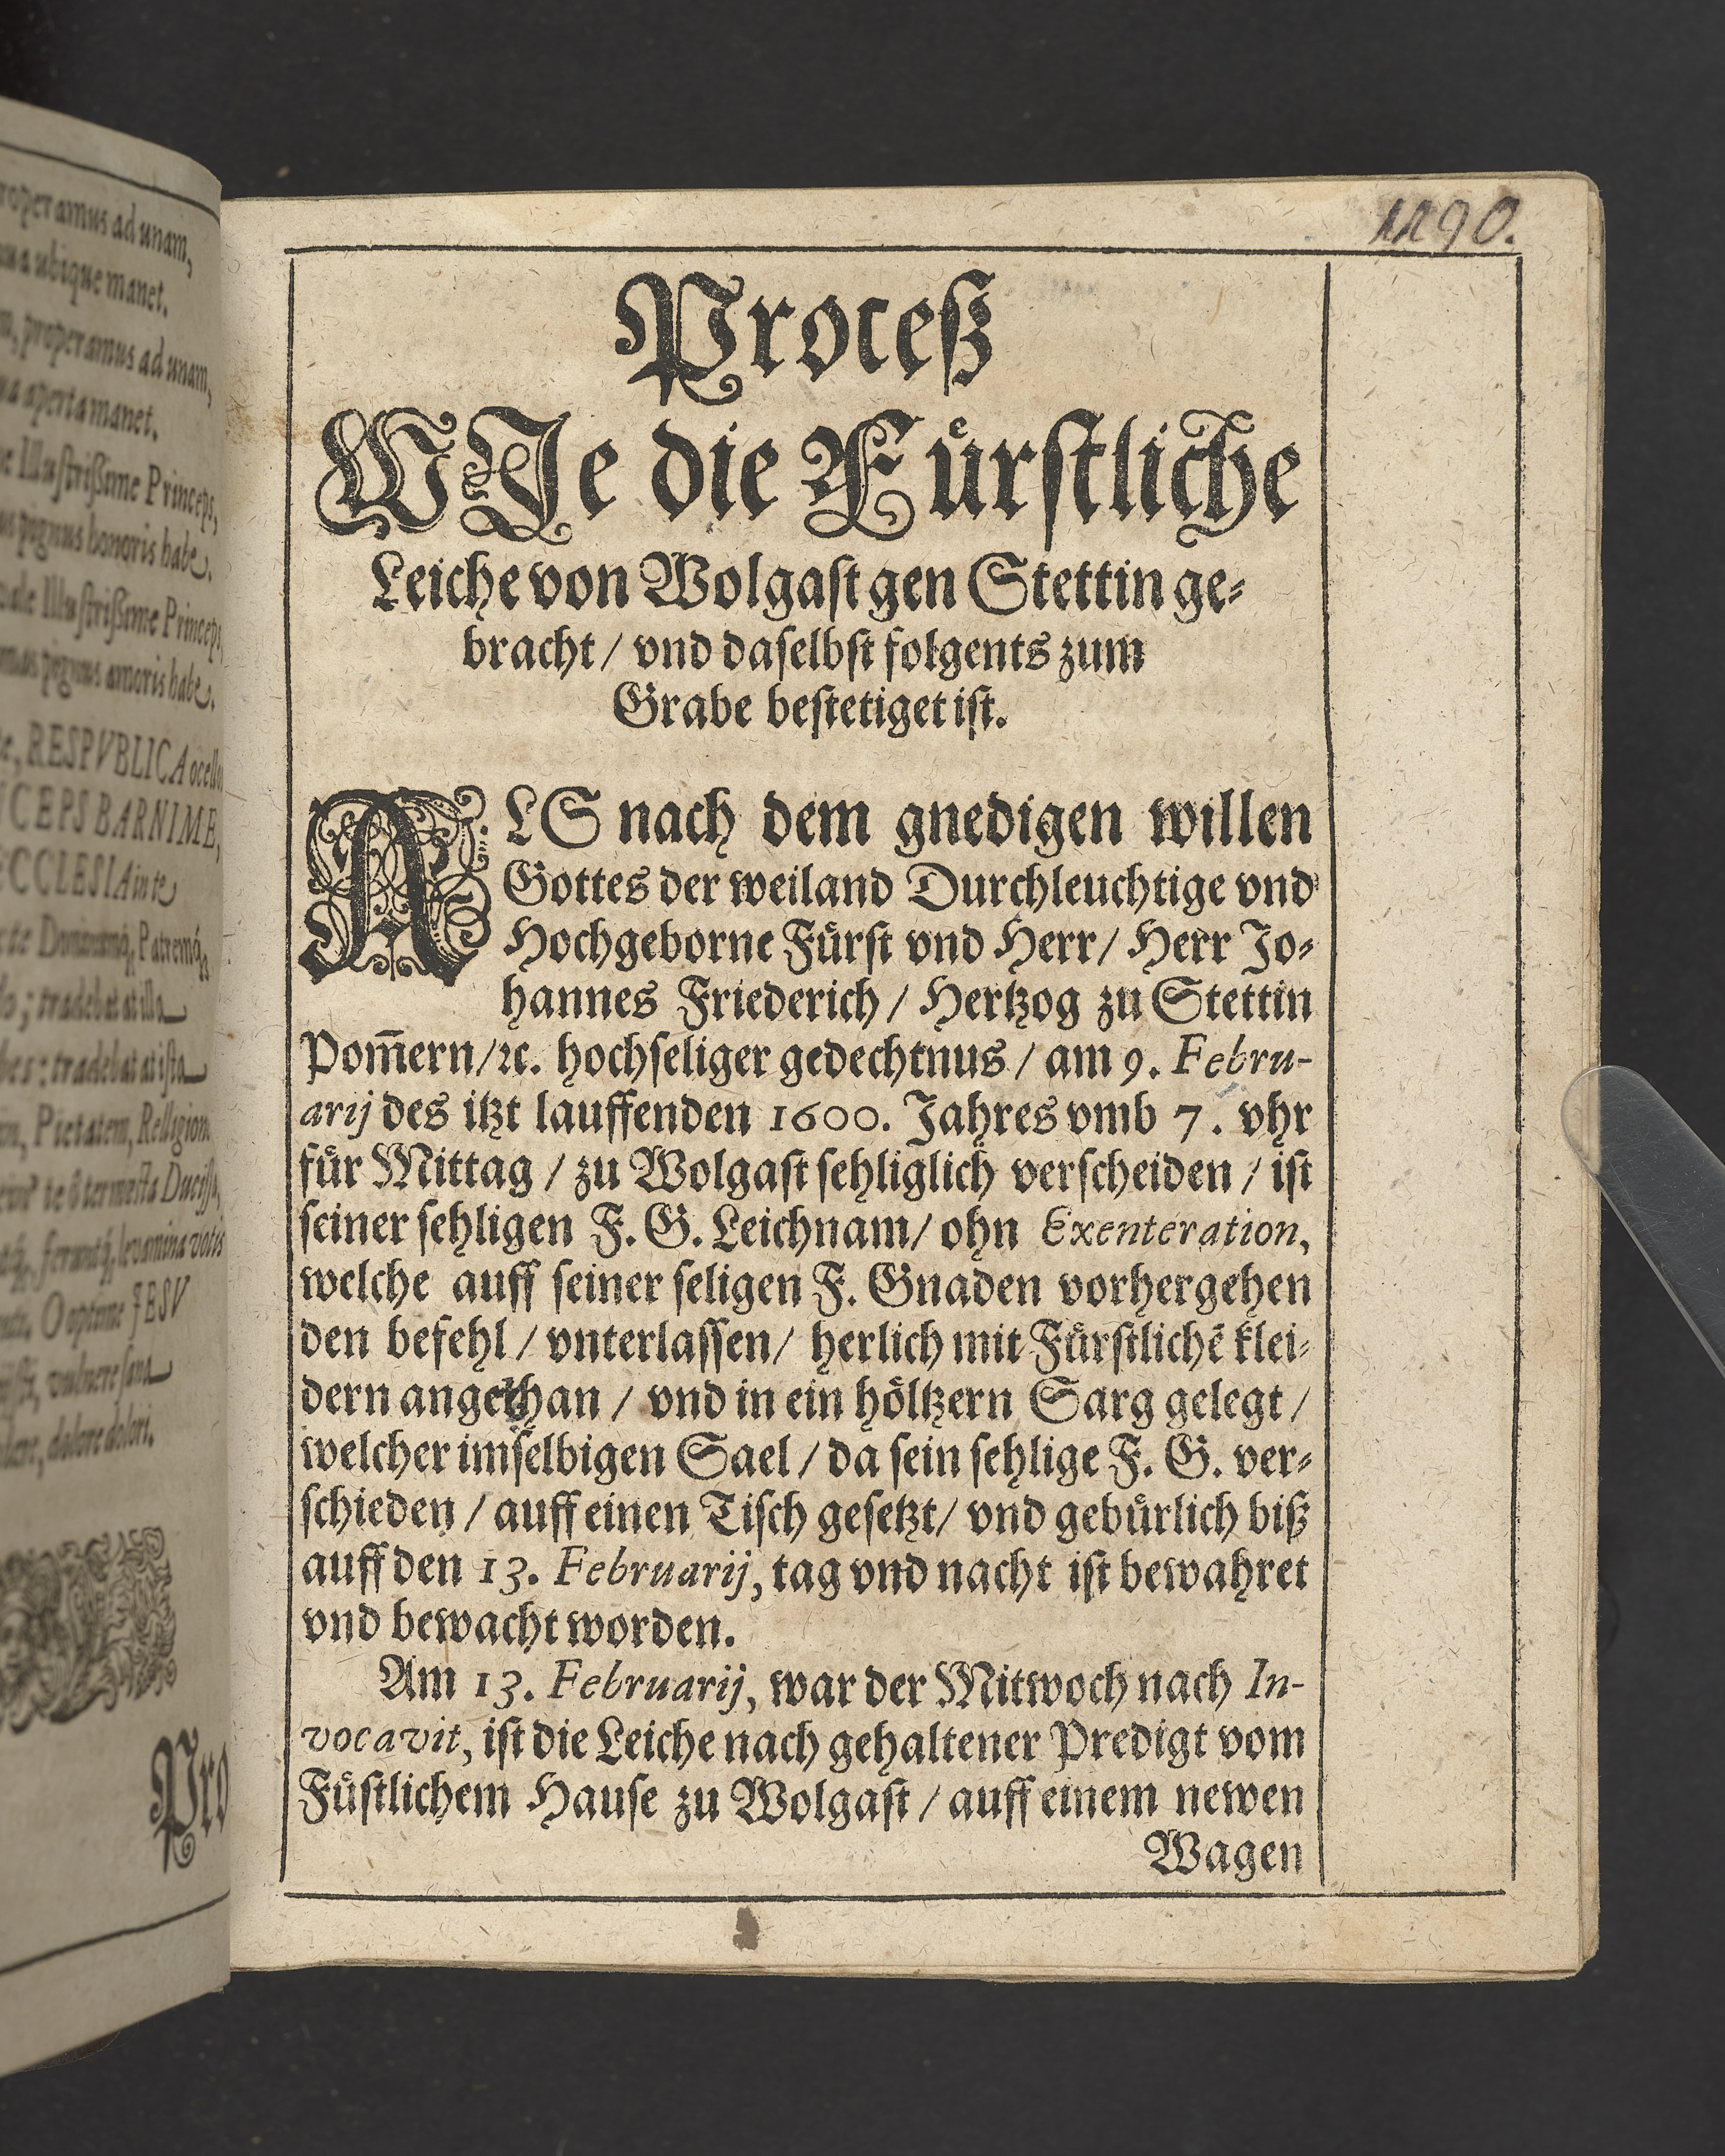 roperamus ad unam,
ubique manet.
properamus ad unam,
aperta manet.
Illustrißime Princeps,
pignus honoris habe.
Illustrißime Princeps,
pignus amoris habe.
RESPVBLICA
CEPS BARNIME,
ECCLESIA in te
Patremq́,
tradebat at illa
tradebat at ista
Pietatem, Religion
O optime JESV
dolore dolori.
Pro
1190.
Proceß
WJe die Fuͤrstliche
Leiche von Wolgast gen Stettin ge⸗
bracht / vnd daselbst folgents zum
Grabe bestetiget ist.
ALS nach dem gnedigen willen
Gottes der weiland Durchleuchtige vnd
Hochgeborne Fuͤrst vnd Herr/ Herr Jo⸗
hannes Friederich / Hertzog zu Stettin
Pom̃ern/ꝛc. hochseliger gedechtnus / am 9. Febru-
arij des itzt lauffenden 1600. Jahres vmb 7. vhr
fuͤr Mittag / zu Wolgast sehliglich verscheiden / ist
seiner sehligen F. G. Leichnam/ ohn Exenteration,
welche auff seiner seligen F. Gnaden vorhergehen
den befehl / vnterlassen/ herlich mit Fuͤrstlichẽ klei⸗
dern angethan / vnd in ein hoͤltzern Sarg gelegt /
welcher imselbigen Sael / da sein sehlige F. G. ver⸗
schieden / auff einen Tisch gesetzt/ vnd gebuͤrlich biß
auff den 13. Februarij, tag vnd nacht ist bewahret
vnd bewacht worden.
Am 13. Februarij, war der Mitwoch nach In-
vocavit, ist die Leiche nach gehaltener Predigt vom
Fuͤstlichem Hause zu Wolgast / auff einem newen
Wagen